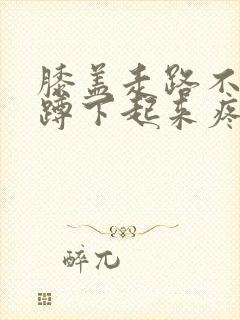 膝盖走路不
蹲下起来疼
醉兀